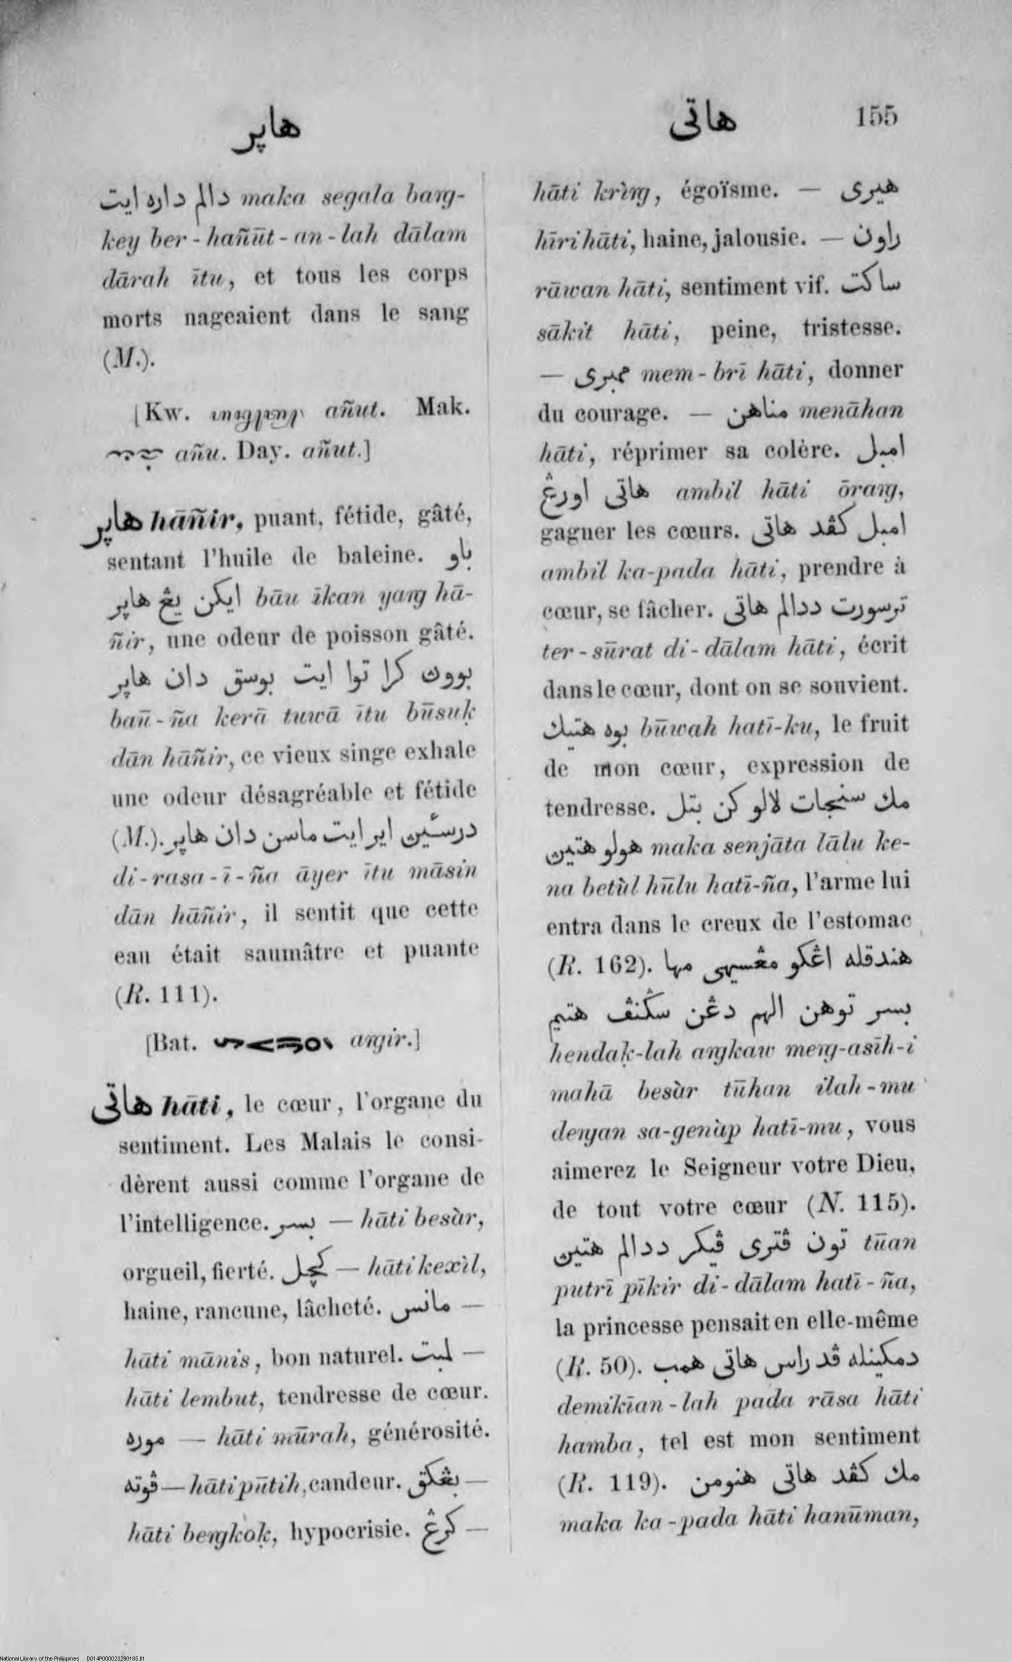 هاڽر
هاتی
155
دالم داره ایت maka segala barg-
key ber-hañūt-an-lah dālam
dārah ītu, et tous les corps
morts nageaient dans le sang
(M.).
[Kw. añut. Mak.
añu. Day. añut.]
هاڽر hāñir, puant, fétide, gâté,
sentant l'huile de baleine. باو
ایکن یڠ هاڽر bāu īkan yarg hā-
ñir, une odeur de poisson gâté.
کرا توا ایت بوسق دان هاڽر
bau-ña kerā tuwā ītu būsuḳ
dān hāñir, ce vieux singe exhale
une odeur désagréable et fétide
(M.). ایر ایت ماسن دان هاڽر
di-rasa-ī-ña āyer ītu māsin
dān hāñir, il sentit que cette
eau était saumâtre et puante
(R. 111).
[Bat. argir.]
هاتی hāti, le cœur, l'organe du
sentiment. Les Malais le consi-
dèrent aussi comme l'organe de
l'intelligence. بسر — hāti besàr,
orgueil, fierté. کچل — hāti kexìl,
haine, rancune, lâcheté. مانس —
hāti mānis, bon naturel. لمبت —
hāti lembut, tendresse de cœur.
موره — hāti mūrah, générosité.
ڤوته — hāti pūtih, candeur. بڠکق —
hāti bergkoḳ, hypocrisie. کرڠ —
hāti krìrg, égoïsme. — هیری
hīri hāti, haine, jalousie. — راون
rāwan hāti, sentiment vif. ساکت
sākit hāti, peine, tristesse.
— ممبری mem-brī hāti, donner
du courage. — مناهن menāhan
hāti, réprimer sa colère. امبل
هاتی اورڠ ambil hāti ōrarg,
gagner les cœurs. امبل کڤد هاتی
ambil ka-pada hāti, prendre à
cœur, se fâcher. ترسورت ددالم هاتی
ter-sūrat di-dālam hāti, écrit
dans le cœur, dont on se souvient.
بوه هتیك būwah hatī-ku, le fruit
de mon cœur, expression de
tendresse. مك سنجات لالو کن بتل
هولو هتین maka senjāta lālu ke-
na betùl hūlu hatī-ña, l'arme lui
entra dans le creux de l'estomac
(R. 162). هندقله اڠکو مڠسیهی مها
بسر توهن الهم دڠن سڬنڤ هتیم
hendaḳ-lah argkaw merg-asīh-i
mahā besàr tūhan ilah-mu
dergan sa-genàp hatī-mu, vous
aimerez le Seigneur votre Dieu,
de tout votre cœur (N. 115).
تون ڤتری ڤیکر ددالم هتین tūan
putrī pīkir di-dālam hatī-ña,
la princesse pensait en elle-même
(R. 50). دمکینله ڤد راس هاتی همب
demikīan-lah pada rāsa hāti
hamba, tel est mon sentiment
(R. 119). مك کڤد هاتی هنومن
maka ka-pada hāti hanūman,
National Library of the Philippines